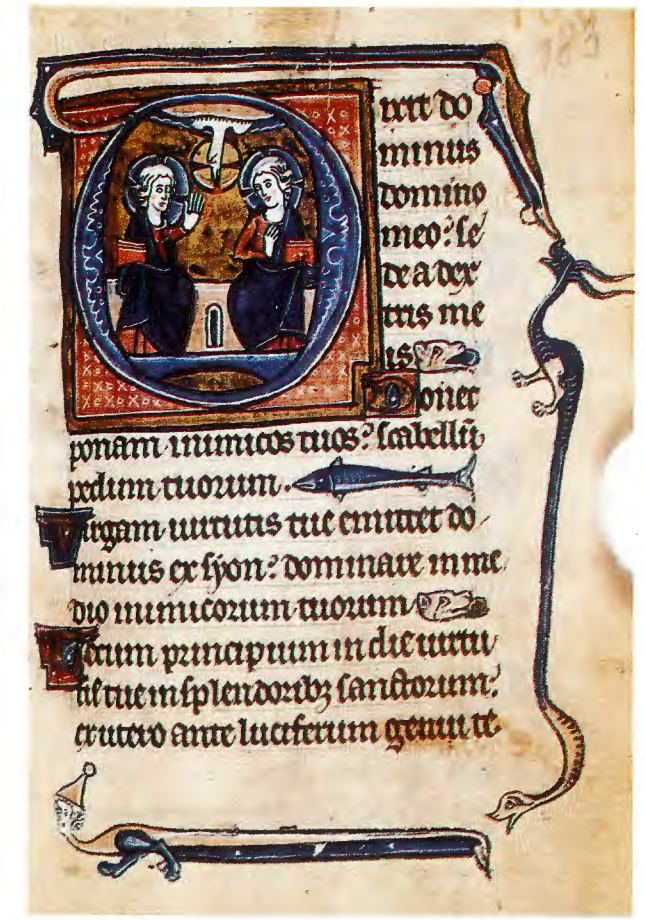 183
Dixit do
minus
domino
meo: se
de a dex
tris me
is
Donec
ponam inimicos tuos: scabellū
pedum tuorum.
Virgam uirtutis tue emittet do
minus ex syon: dominare in me
dio inimicorum tuorum
Tecum principium in die uirtu
tis tue in splendoribꝫ sanctorum:
ex utero ante luciferum genui te.